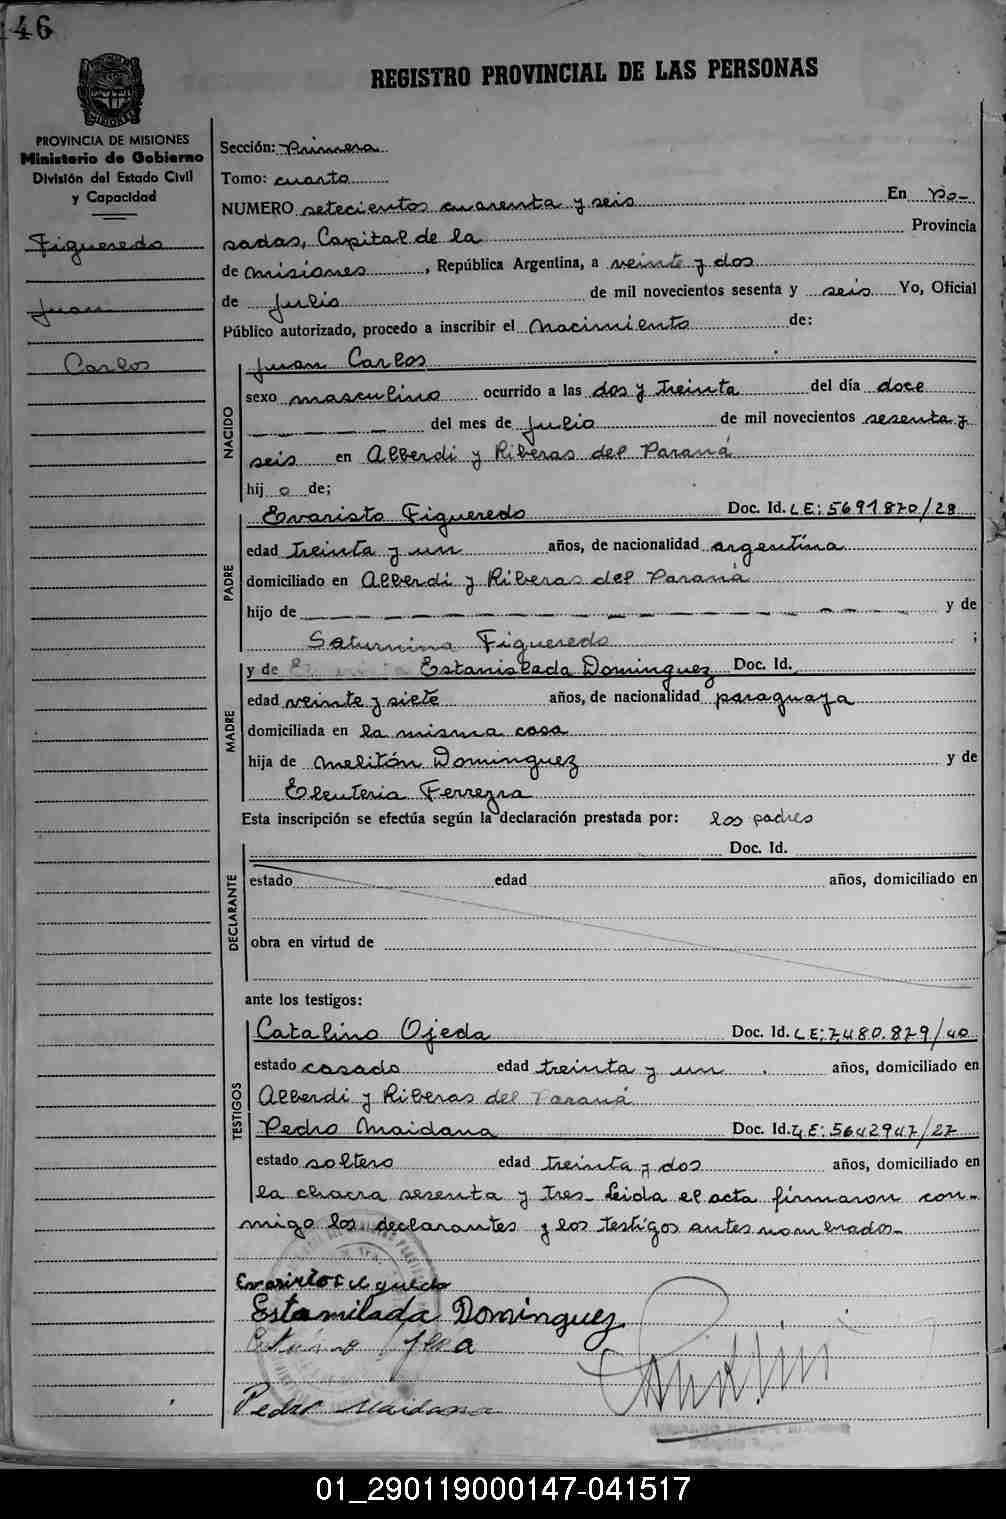 46
REGISTRO PROVINCIAL DE LAS PERSONAS
PROVINCIA DE MISIONES
Ministerio de Gobierno
División del Estado Civil
y Capacidad
Figueredo
Juan
Carlos
Sección: Primera
Tomo: cuarto
NUMERO setecientos cuarenta y seis En Po-
sadas, Capital de la Provincia
de Misiones, República Argentina, a veinte y dos
de Julio de mil novecientos sesenta y seis Yo, Oficial
Público autorizado, procedo a inscribir el Nacimiento de:
NACIDO
Juan Carlos
sexo masculino ocurrido a las dos y treinta del día doce
del mes de Julio de mil novecientos sesenta y
seis en Alberdi y Riberas del Paraná
hijo de;
PADRE
Evaristo Figueredo Doc. Id. LE: 5691870/28
edad treinta y un años, de nacionalidad argentina
domiciliado en Alberdi y Riberas del Paraná
hijo de y de
Saturnina Figueredo ;
MADRE
y de Estanislada Dominguez Doc. Id.
edad veinte y siete años, de nacionalidad paraguaya
domiciliada en la misma casa
hija de Melitón Dominguez y de
Eleuteria Ferreyra
Esta inscripción se efectúa según la declaración prestada por: los padres
DECLARANTE
Doc. Id.
estado edad años, domiciliado en
obra en virtud de
ante los testigos:
TESTIGOS
Catalino Ojeda Doc. Id. LE: 7.480.879/40
estado casado edad treinta y un años, domiciliado en
Alberdi y Riberas del Paraná
Pedro Maidana Doc. Id. LE: 5642947/27
estado soltero edad treinta y dos años, domiciliado en
la chacra sesenta y tres_ Leida el acta firmaron con-
migo los declarantes y los testigos antes nombrados_
Estamilada Dominguez
Pedro Maidana
01_290119000147-041517